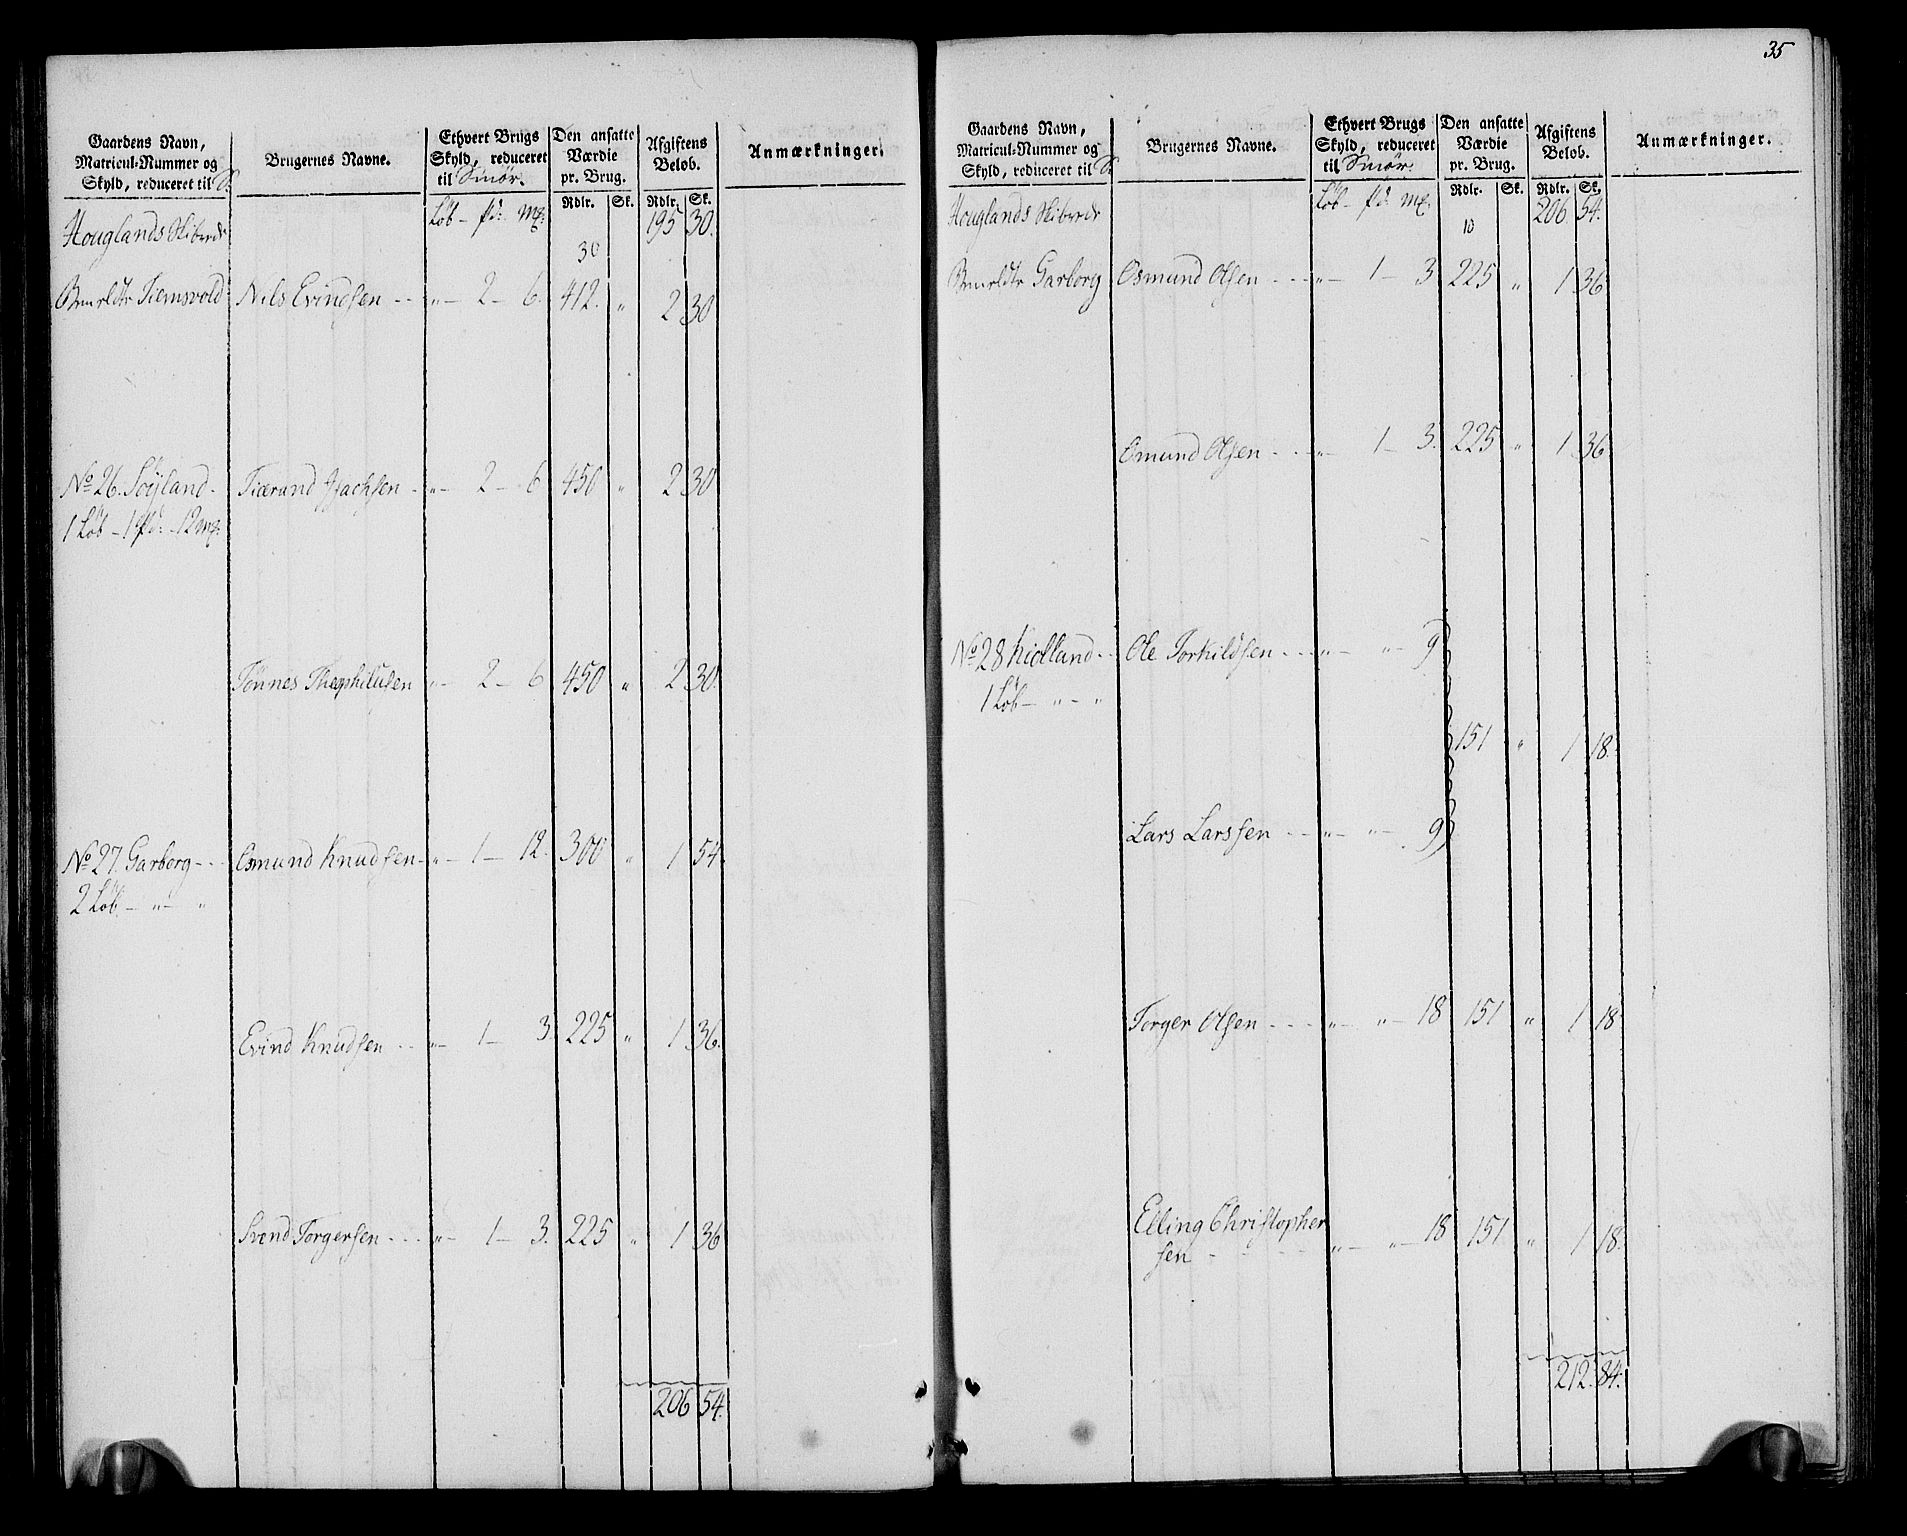 Gaardens Navn,
Matricul-Nummer og
Skyld, reduceret til S:
Brugernes Navne.
Ethvert Brugs
Skyld, reduceret
til Smör.
Den ansatte
Værdie
pr. Brug.
Afgiftens
Belob.
Anmærkninger.
Rdlr. Sk. Rdlr. Sk.
Houglands Skibrede Löb - pd: mk: 195 30.
30
Tiemsvold Nils Evindsen - - „ - 2 - 6. 412. „ 2 30
No 26. Söyland. Tiærand Isachsen - „ - 2 - 6 450 „ 2 30
1 Löb - 1 pd: - 12 mk:
Tönnes Theophilusen „ - 2 - 6 450 „ 2 30.
No 27. Garborg - - Osmund Knudsen - „ - 1 - 12. 300 „ 1 54
2 Löb - „ - „
Evind Knudsen - - „ - 1 - 3. 225 „ 1 36.
Svend Torgersen - - - „ - 1 - 3. 225 „ 1 36
206 54.
35
Gaardens Navn,
Matricul-Nummer og
Skyld, reduceret til S:
Brugernes Navne.
Ethvert Brugs
Skyld, reduceret
til Smör.
Den ansatte
Værdie
pr. Brug.
Afgiftens
Belob.
Anmærkninger.
Rdlr. Sk. Rdlr. Sk.
Houglands Skibrede Löb - pd: mk: 206 54.
10
Garborg Osmund Olsen - - - „ - 1 - 3 225 „ 1 36
Omund Olsen - - - „ - 1 - 3. 225 „ 1 36
No 28 Kiolland - - Ole Torkildsen - - - „ - „ - 9
1 Löb - „ - „
151 „ 1 18.
Lars Larssen - - - „ - „ - 9
Torger Olsen - - - „ - „ - 18 151 „ 1 18
Elling Christopher
sen - - - - „ - „ - 18 151 „ 1 18.
212. 84.